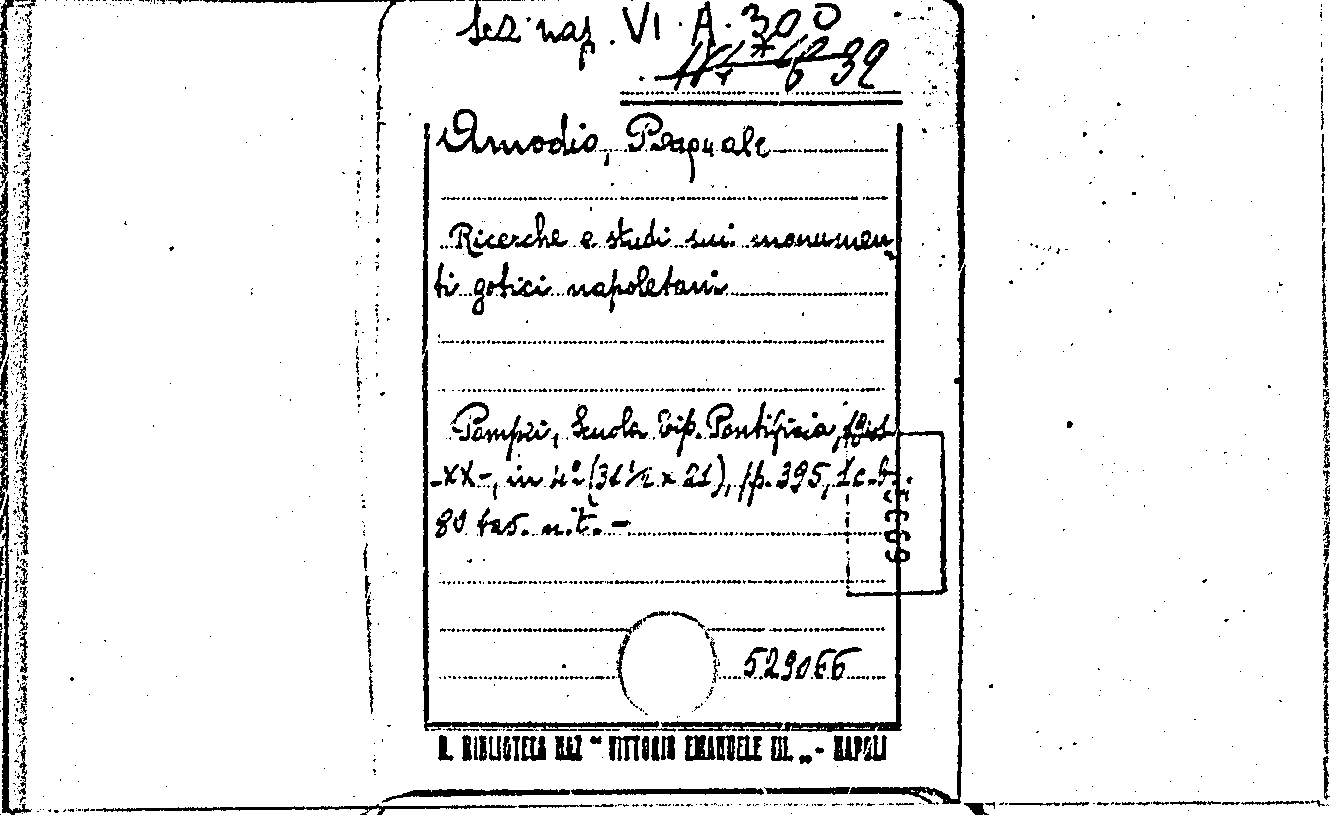 Sez. nap. VI. A. 300
Amodio, Pasquale
Ricerche e studi sui monumen-
ti gotici napoletani
Pompei, Scuola Tip. Pontificia,
-XX-, in 4º (31 ½ x 21), pp. 395, 1 c. b.
80 tav. n. t. -
529066
R. BIBLIOTECA NAZ "VITTORIO EMANUELE III. „ - NAPOLI